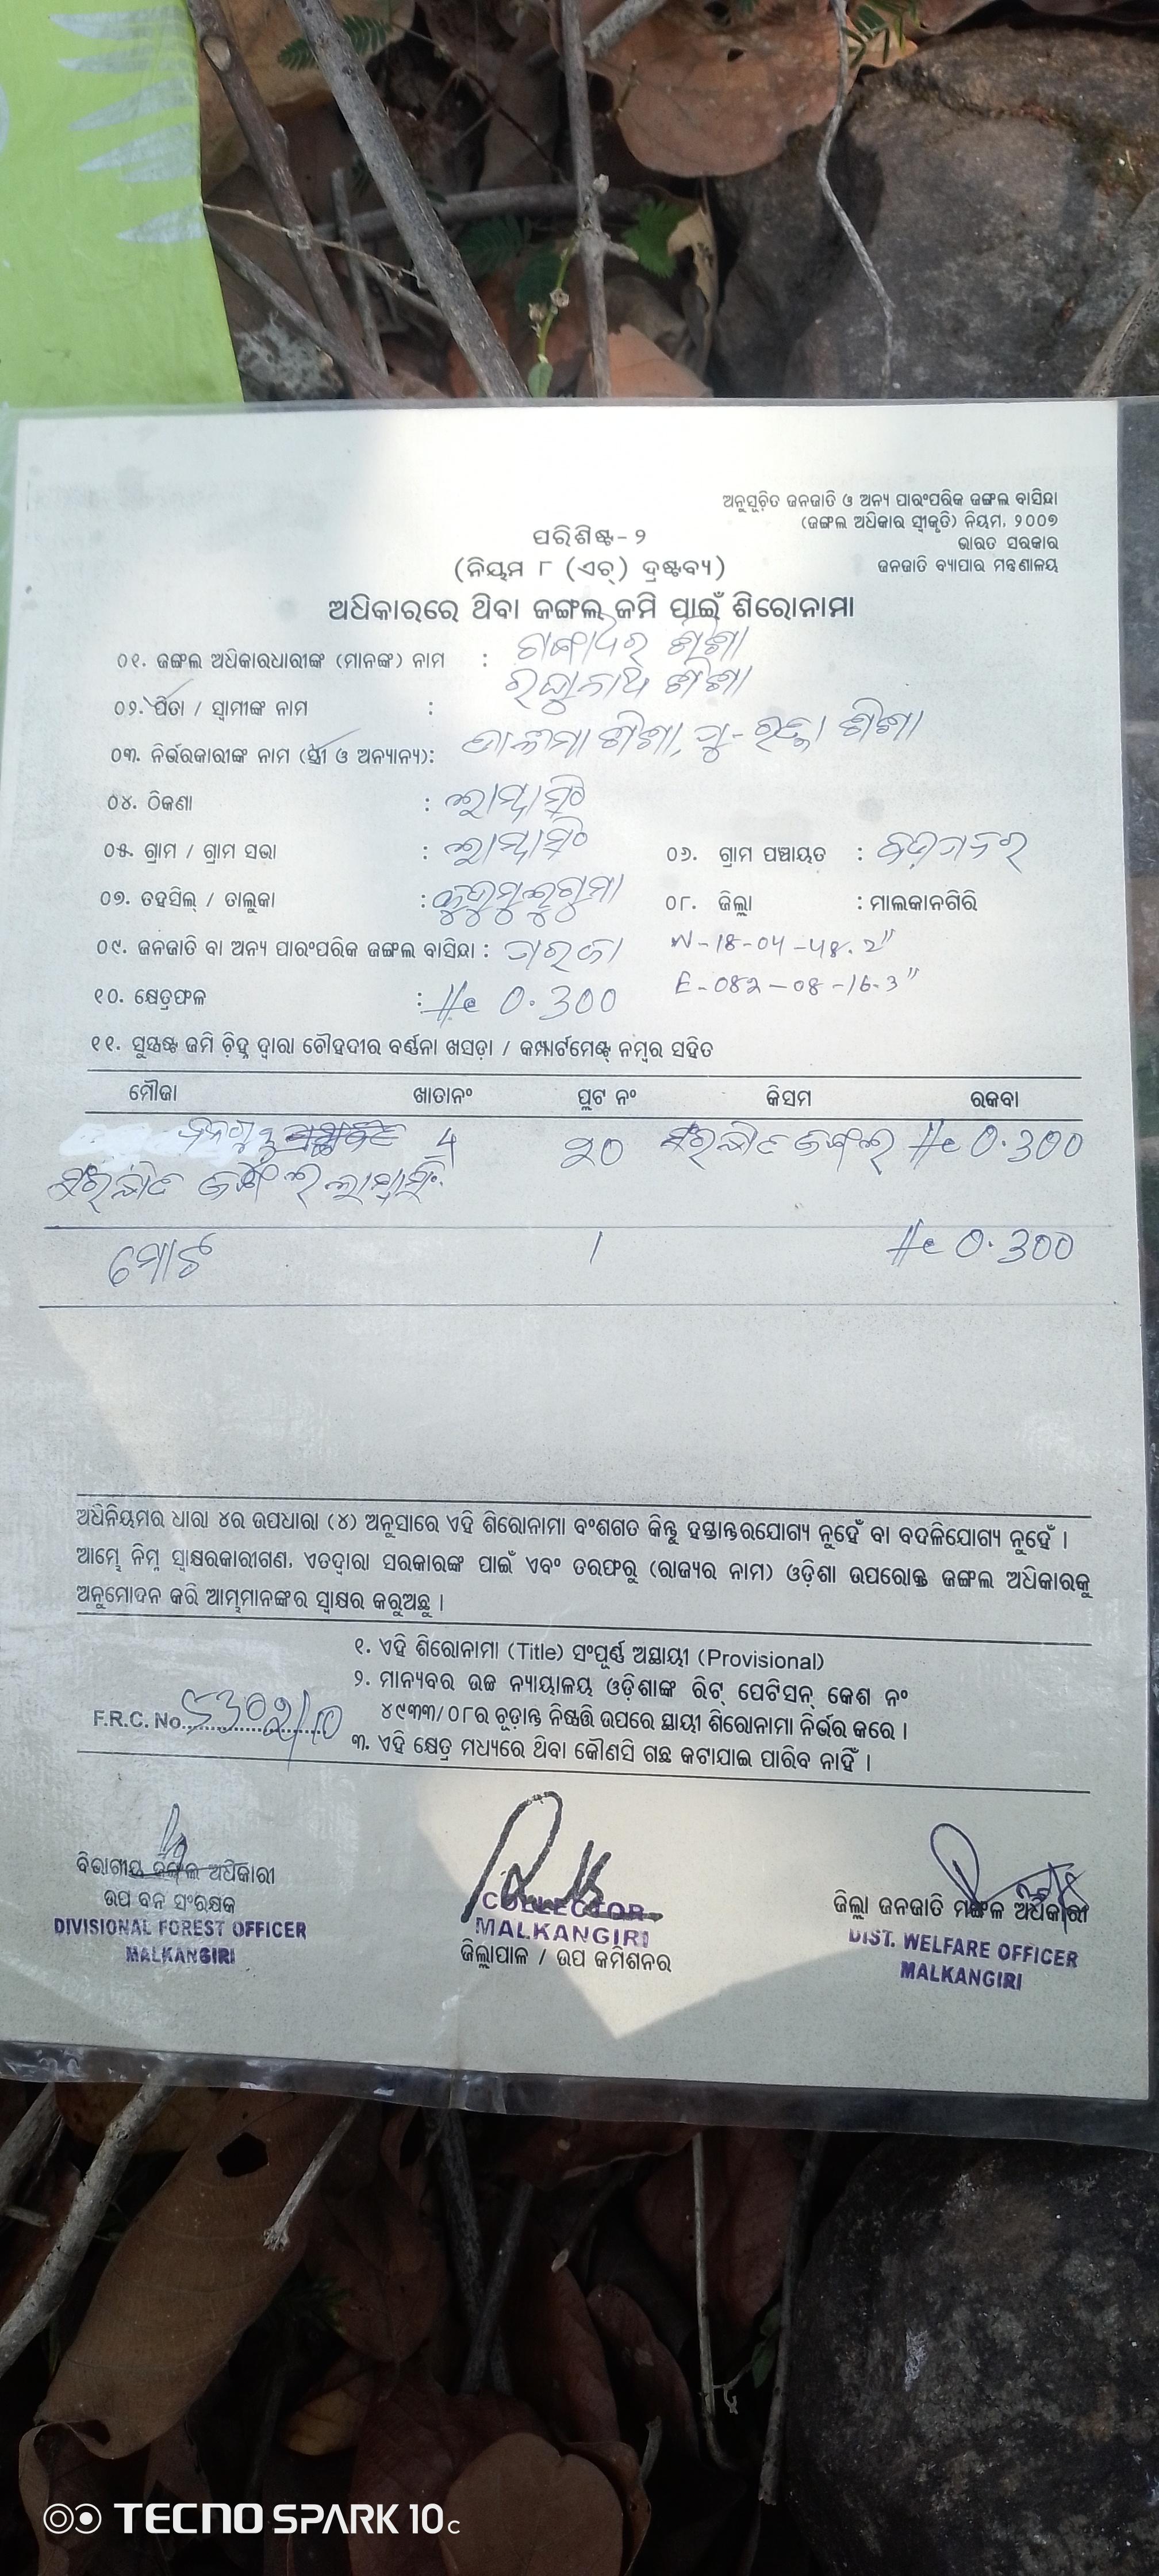 ଅନୁସୂଚିତ ଜନଜାତି ଓ ଅନ୍ୟ ପାରଂପରିକ ଜଙ୍ଗଲ ବାସିନ୍ଦା
(ଜଙ୍ଗଲ ଅଧିକାର ସ୍ୱୀକୃତି) ନିୟମ, ୨୦୦୭
ଭାରତ ସରକାର
ଜନଜାତି ବ୍ୟାପାର ମନ୍ତ୍ରଣାଳୟ
ପରିଶିଷ୍ଟ-୨
(ନିୟମ ୮ (ଏଚ୍) ଦ୍ରଷ୍ଟବ୍ୟ)
ଅଧିକାରରେ ଥିବା ଜଙ୍ଗଲ ଜମି ପାଇଁ ଶିରୋନାମା
୦୧. ଜଙ୍ଗଲ ଅଧିକାରଧାରୀଙ୍କ (ମାନଙ୍କ) ନାମ : ଗଙ୍ଗାଧର ଶିଶା
୦୨. ପିତା / ସ୍ୱାମୀଙ୍କ ନାମ : ରଘୁନାଥ ଶିଶା
୦୩. ନିର୍ଭରକାରୀଙ୍କ ନାମ (ସ୍ତ୍ରୀ ଓ ଅନ୍ୟାନ୍ୟ): ଶିଶା, ଶିଶା
୦୪. ଠିକଣା :
୦୫. ଗ୍ରାମ / ଗ୍ରାମ ସଭା :
୦୬. ଗ୍ରାମ ପଞ୍ଚାୟତ :
୦୭. ତହସିଲ୍ / ତାଲୁକା : କୁଡୁମୁଲୁଗୁମା
୦୮. ଜିଲ୍ଲା : ମାଲକାନଗିରି
୦୯. ଜନଜାତି ବା ଅନ୍ୟ ପାରଂପରିକ ଜଙ୍ଗଲ ବାସିନ୍ଦା :
N-18-04-48.2"
E-082-08-16.3"
୧୦. କ୍ଷେତ୍ରଫଳ : He 0.300
୧୧. ସୁସ୍ପଷ୍ଟ ଜମି ଚିହ୍ନ ଦ୍ୱାରା ଚୌହଦୀର ବର୍ଣ୍ଣନା ଖସଡ଼ା / କମ୍ପାର୍ଟମେଣ୍ଟ୍ ନମ୍ବର ସହିତ
ମୌଜା ଖାତାନଂ ପ୍ଲଟ ନଂ କିସମ ରକବା
4 20 ଜଙ୍ଗଲ He 0.300
ମୋଟ 1 He 0.300
ଅଧିନିୟମର ଧାରା ୪ର ଉପଧାରା (୪) ଅନୁସାରେ ଏହି ଶିରୋନାମା ବଂଶଗତ କିନ୍ତୁ ହସ୍ତାନ୍ତରଯୋଗ୍ୟ ନୁହେଁ ବା ବଦଳିଯୋଗ୍ୟ ନୁହେଁ ।
ଆମ୍ଭେ ନିମ୍ନ ସ୍ୱାକ୍ଷରକାରୀଗଣ, ଏତଦ୍ୱାରା ସରକାରଙ୍କ ପାଇଁ ଏବଂ ତରଫରୁ (ରାଜ୍ୟର ନାମ) ଓଡ଼ିଶା ଉପରୋକ୍ତ ଜଙ୍ଗଲ ଅଧିକାରକୁ
ଅନୁମୋଦନ କରି ଆମ୍ଭମାନଙ୍କର ସ୍ୱାକ୍ଷର କରୁଅଛୁ ।
୧. ଏହି ଶିରୋନାମା (Title) ସଂପୂର୍ଣ୍ଣ ଅସ୍ଥାୟୀ (Provisional)
୨. ମାନ୍ୟବର ଉଚ୍ଚ ନ୍ୟାୟାଳୟ ଓଡ଼ିଶାଙ୍କ ରିଟ୍ ପେଟିସନ୍ କେଶ ନଂ
୪୯୩୩/୦୮ର ଚୂଡ଼ାନ୍ତ ନିଷ୍ପତ୍ତି ଉପରେ ସ୍ଥାୟୀ ଶିରୋନାମା ନିର୍ଭର କରେ ।
F.R.C. No.
୩. ଏହି କ୍ଷେତ୍ର ମଧ୍ୟରେ ଥିବା କୌଣସି ଗଛ କଟାଯାଇ ପାରିବ ନାହିଁ ।
ବିଭାଗୀୟ ଜଙ୍ଗଲ ଅଧିକାରୀ
ଉପ ବନ ସଂରକ୍ଷକ
DIVISIONAL FOREST OFFICER
MALKANGIRI
COLLECTOR
MALKANGIRI
ଜିଲ୍ଲାପାଳ / ଉପ କମିଶନର
ଜିଲ୍ଲା ଜନଜାତି ମଙ୍ଗଳ ଅଧିକାରୀ
DIST. WELFARE OFFICER
MALKANGIRI
TECNO SPARK 10C